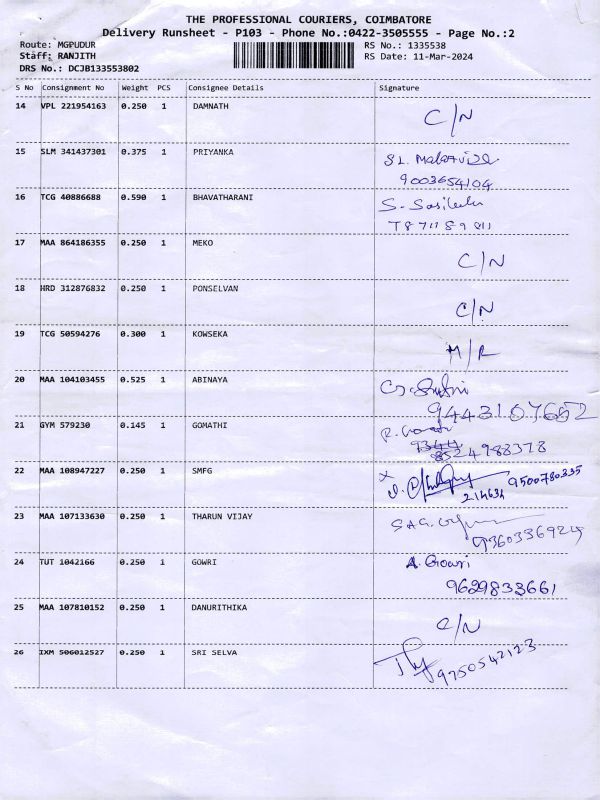 THE PROFESSIONAL COURIERS, COIMBATORE
Delivery Runsheet - P103 - Phone No.:0422-3505555 - Page No.:2
Route: MGPUDUR RS No.: 1335538
Staff: RANJITH RS Date: 11-Mar-2024
DRS No.: DCJB133553802
S No Consignment No Weight PCS Consignee Details Signature
14 VPL 221954163 0.250 1 DAMNATH C/N
15 SLM 341437301 0.375 1 PRIYANKA
9003654104
16 TCG 40886688 0.590 1 BHAVATHARANI
17 MAA 864186355 0.250 1 MEKO C/N
18 HRD 312876832 0.250 1 PONSELVAN C/N
19 TCG 50594276 0.300 1 KOWSEKA M/R
20 MAA 104103455 0.525 1 ABINAYA
9443107652
21 GYM 579230 0.145 1 GOMATHI
22 MAA 108947227 0.250 1 SMFG 9500780335
23 MAA 107133630 0.250 1 THARUN VIJAY
24 TUT 1042166 0.250 1 GOWRI A. Gowri
9629833661
25 MAA 107810152 0.250 1 DANURITHIKA C/N
26 IXM 506012527 0.250 1 SRI SELVA 9750542123